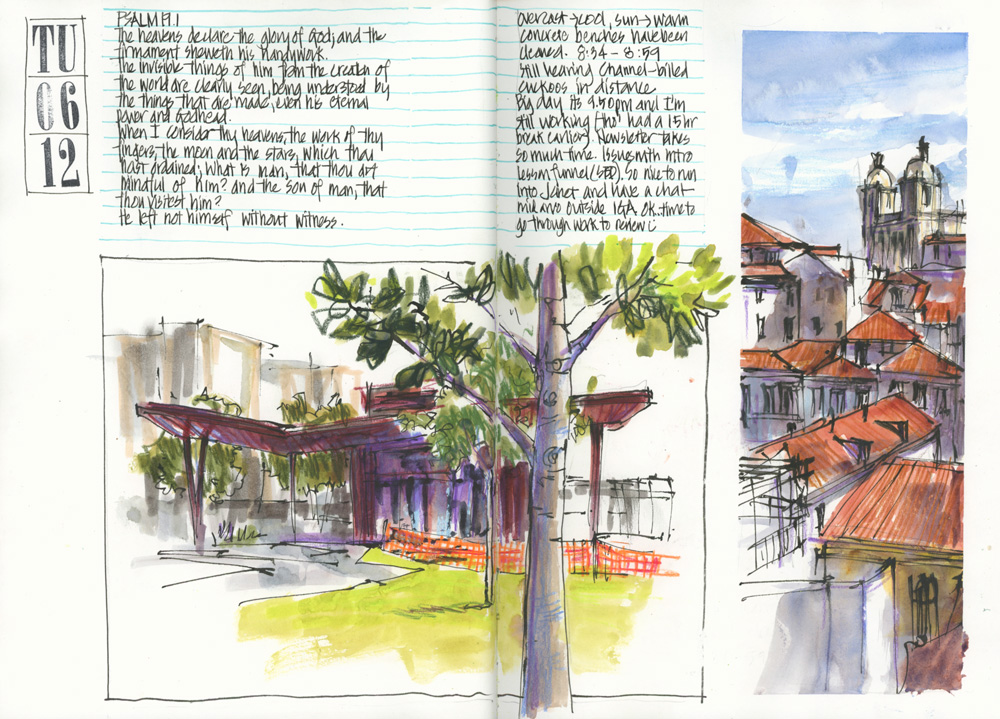 TU
06
12
PSALM 19.1
The heavens declare the glory of God; and the
firmament sheweth his handywork.
The invisible things of him from the creation of
the world are clearly seen, being understood by
the things that are made, even his eternal
power and Godhead.
When I consider thy heavens, the work of thy
fingers, the moon and the stars, which thou
hast ordained; what is man, that thou art
mindful of him? and the son of man, that
thou visitest him?
He left not himself without witness.
overcast → cool, sun → warm
concrete benches have been
cleaned. 8:34 - 8:59
Still hearing channel-billed
cuckoos in distance
Big day its 9.50pm and I'm
still working (tho' had a 1.5hr
break earlier). Newsletter takes
so much time. Issues with intro
lesson funnel (SED). so nice to run
into Janet and have a chat
mid arvo outside IGA. OK..time to
go through work to renew